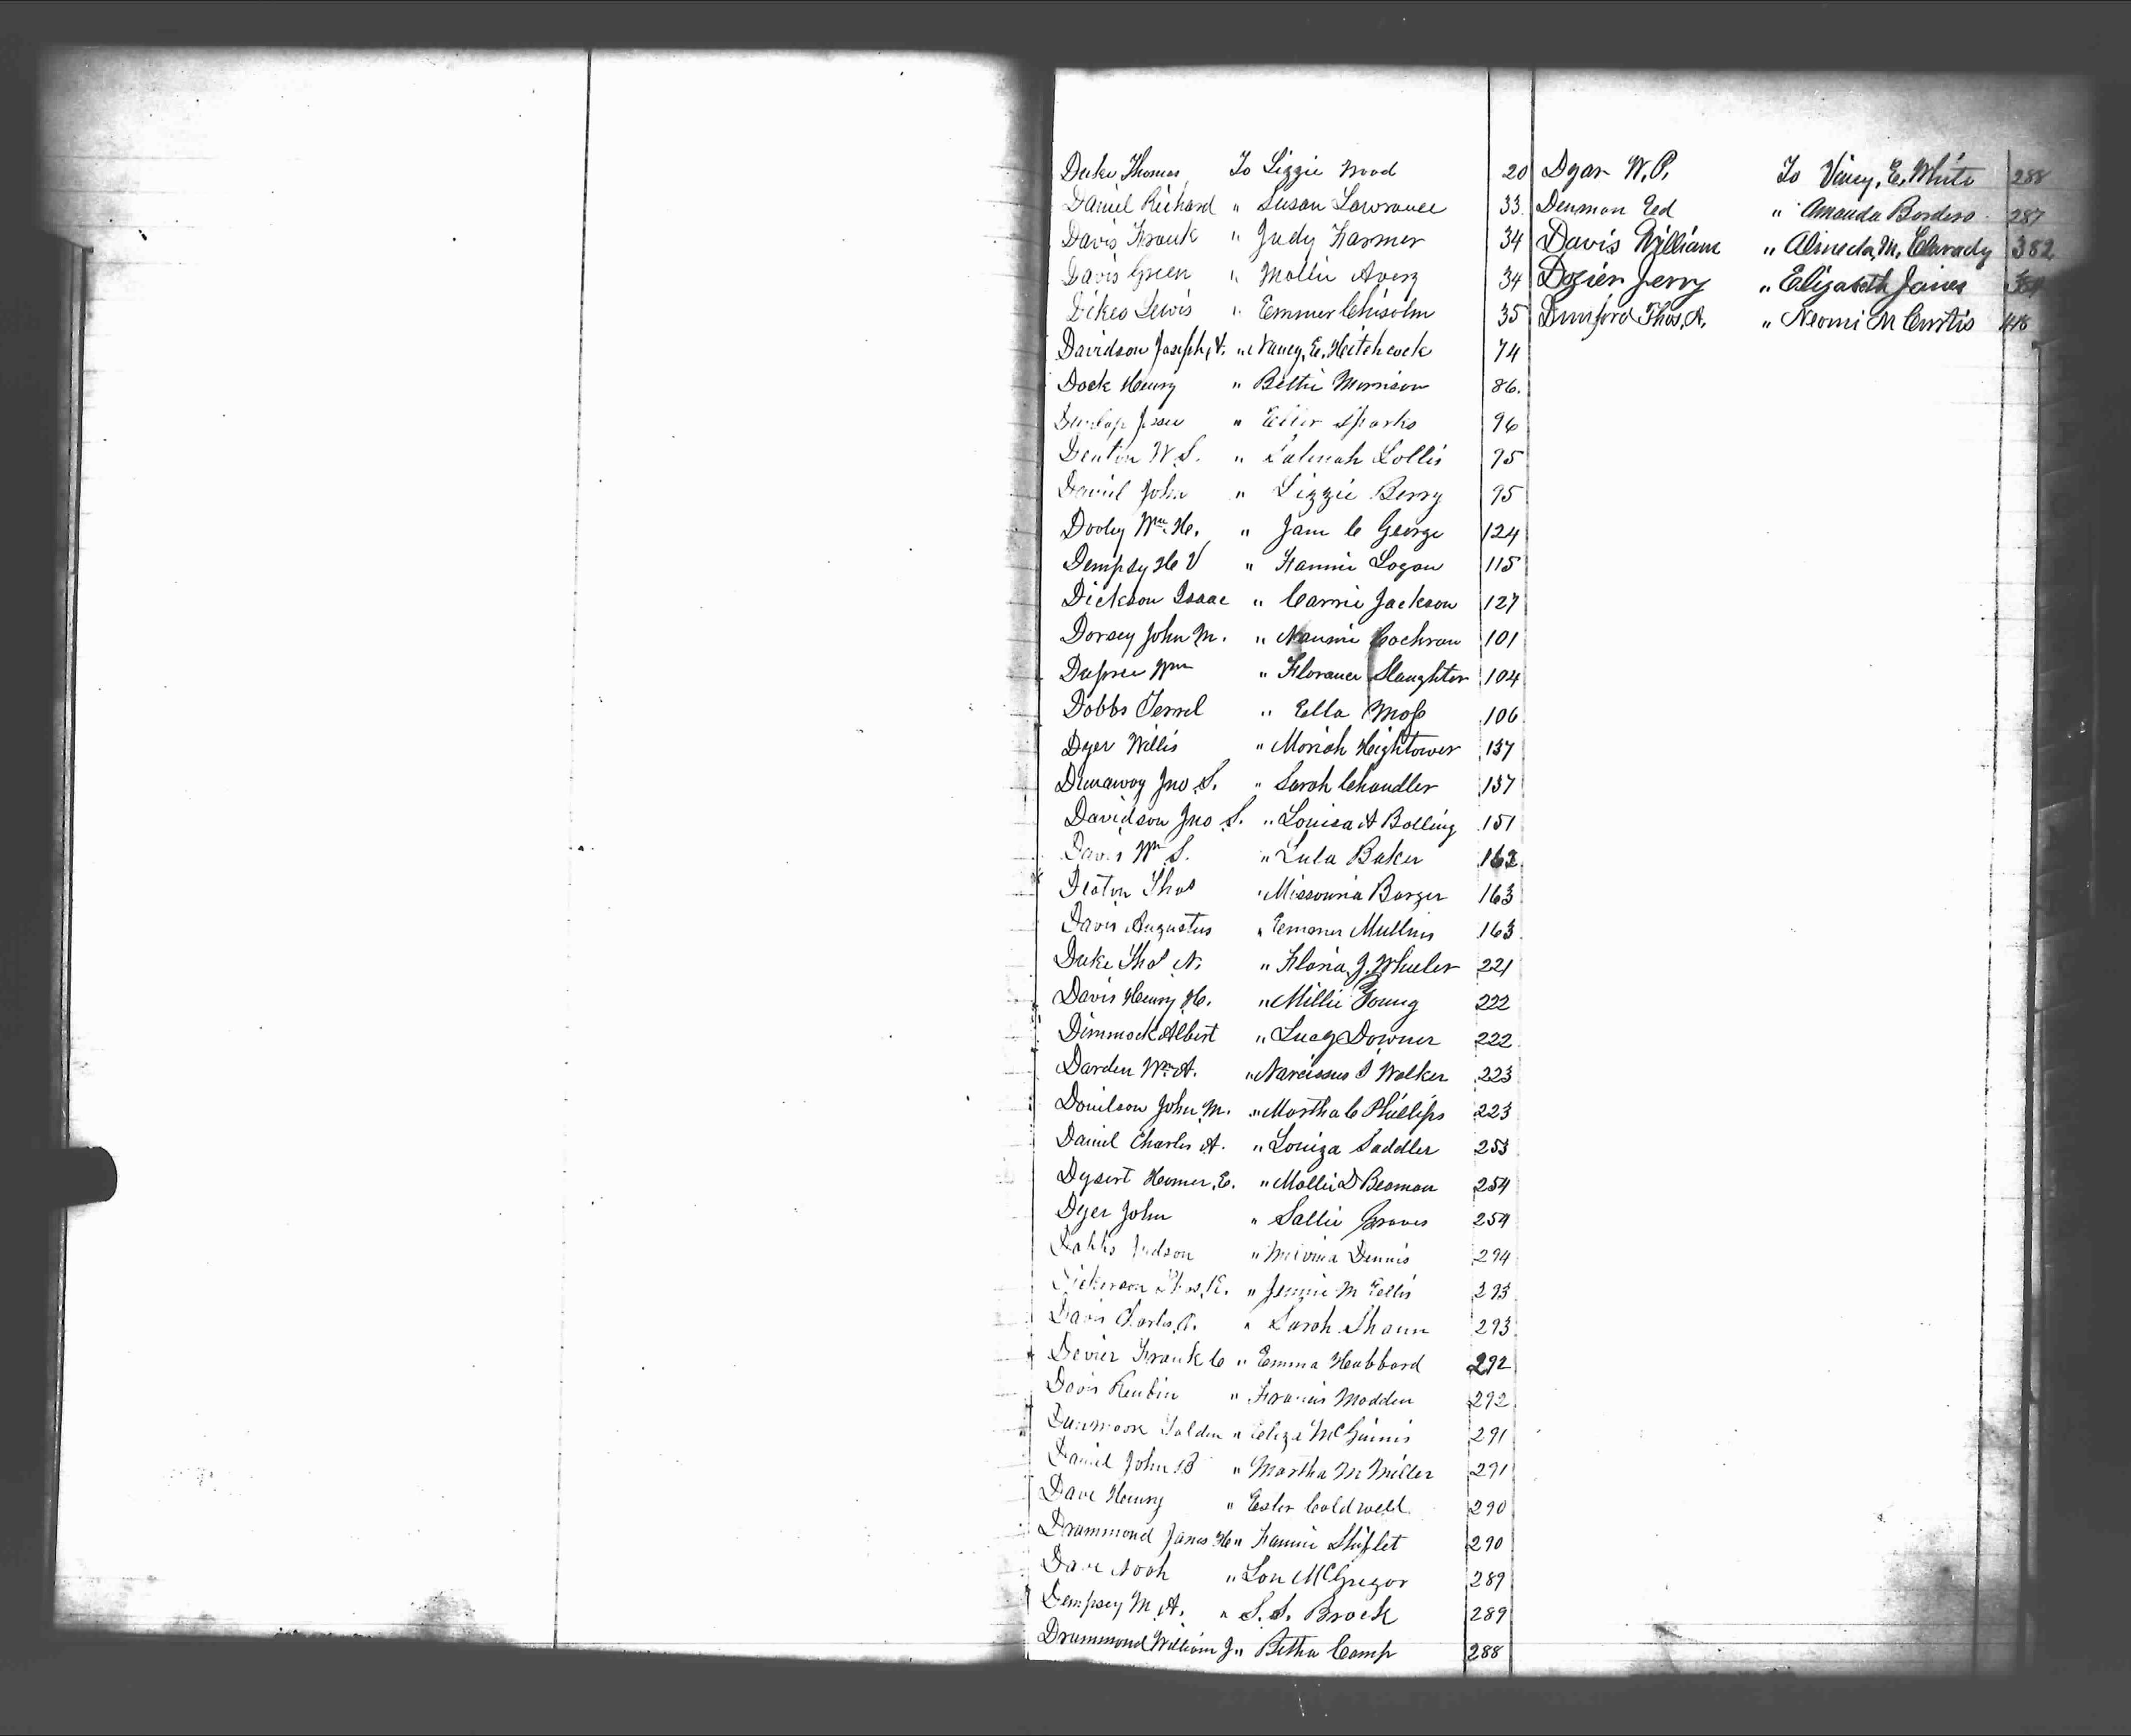 Duke Thomas To Lizzie Wood 20
Daniel Richard " Susan Lawrance 33
Davis Frank " Judy Farmer 34
Davis Green " Mollie Avery 34
Dikes Lewis " Emmer Chisolm 35
Davidson Joseph, A. " Nancy, E. Hitchcock 74
Dock Henry " Bettie Morrison 86.
Dunlap Jesse " Eller Sparks 96
Denton W. S. " Lollis 95
Daniel John " Lizzie Berry 95
Dooly Wm. H. " Jane C George 124
Dempsy H V " Fannie Logan 115
Dickson Isaac " Carrie Jackson 127
Dorsey John M. " Nannie Cochran 101
Dupree Wm " Florance Slaughter 104
Dobbs Terrel " Ella Moss 106
Dyer Willis " Moriah Hightower 137
Dunaway Jno S. " Sarah Chandler 137
Davidson Jno S. " Louisa A Bolling 151
Davis Wm S. " Lula Baker 162
Deaton Thos " Missouria Barger 163
Davis Augustus " Emmer Mullins 163
Duke Thos N. " Floria, J. Wheeler 221
Davis Henry H. " Millie Young 222
Dimmock Albert " Lucy Downer 222
Darden Wm A. " Narcissus S Walker 223
Donilson John M. " Martha C Phillips 223
Daniel Charles A. " Louiza Saddler 253
Dysert Homer, E. " Mollie D Beaman 254
Dyer John " Sallie Graves 254
Dobbs Judson " Melvina Dennis 294
Dickerson Thos, E. " Jennie M Ellis 293
Davis Charles, A. " Sarah Shaun 293
Devier Frank C " Emma Hubbard 292
Davis Reubin " Francis Madden 292
Dunmook Golden " Eliza McGinnis 291
Daniel John B " Martha M Miller 291
Dave Henry " Ester Coldwell 290
Drummond James H " Fannie Shiflet 290
Dave Noah " Lou McGregor 289
Dempsey M, A. " S. S. Brock 289
Drummond William J " Betha Camp 288
Dyar W. P. To Viney, E. White 288
Denmon Ed " Amanda Borders 287
Davis William " Almeda, M, Carady 382
Dozier Jerry " Elizabeth Janes
Dunford Thos, A. " Neomi M Curtis 418